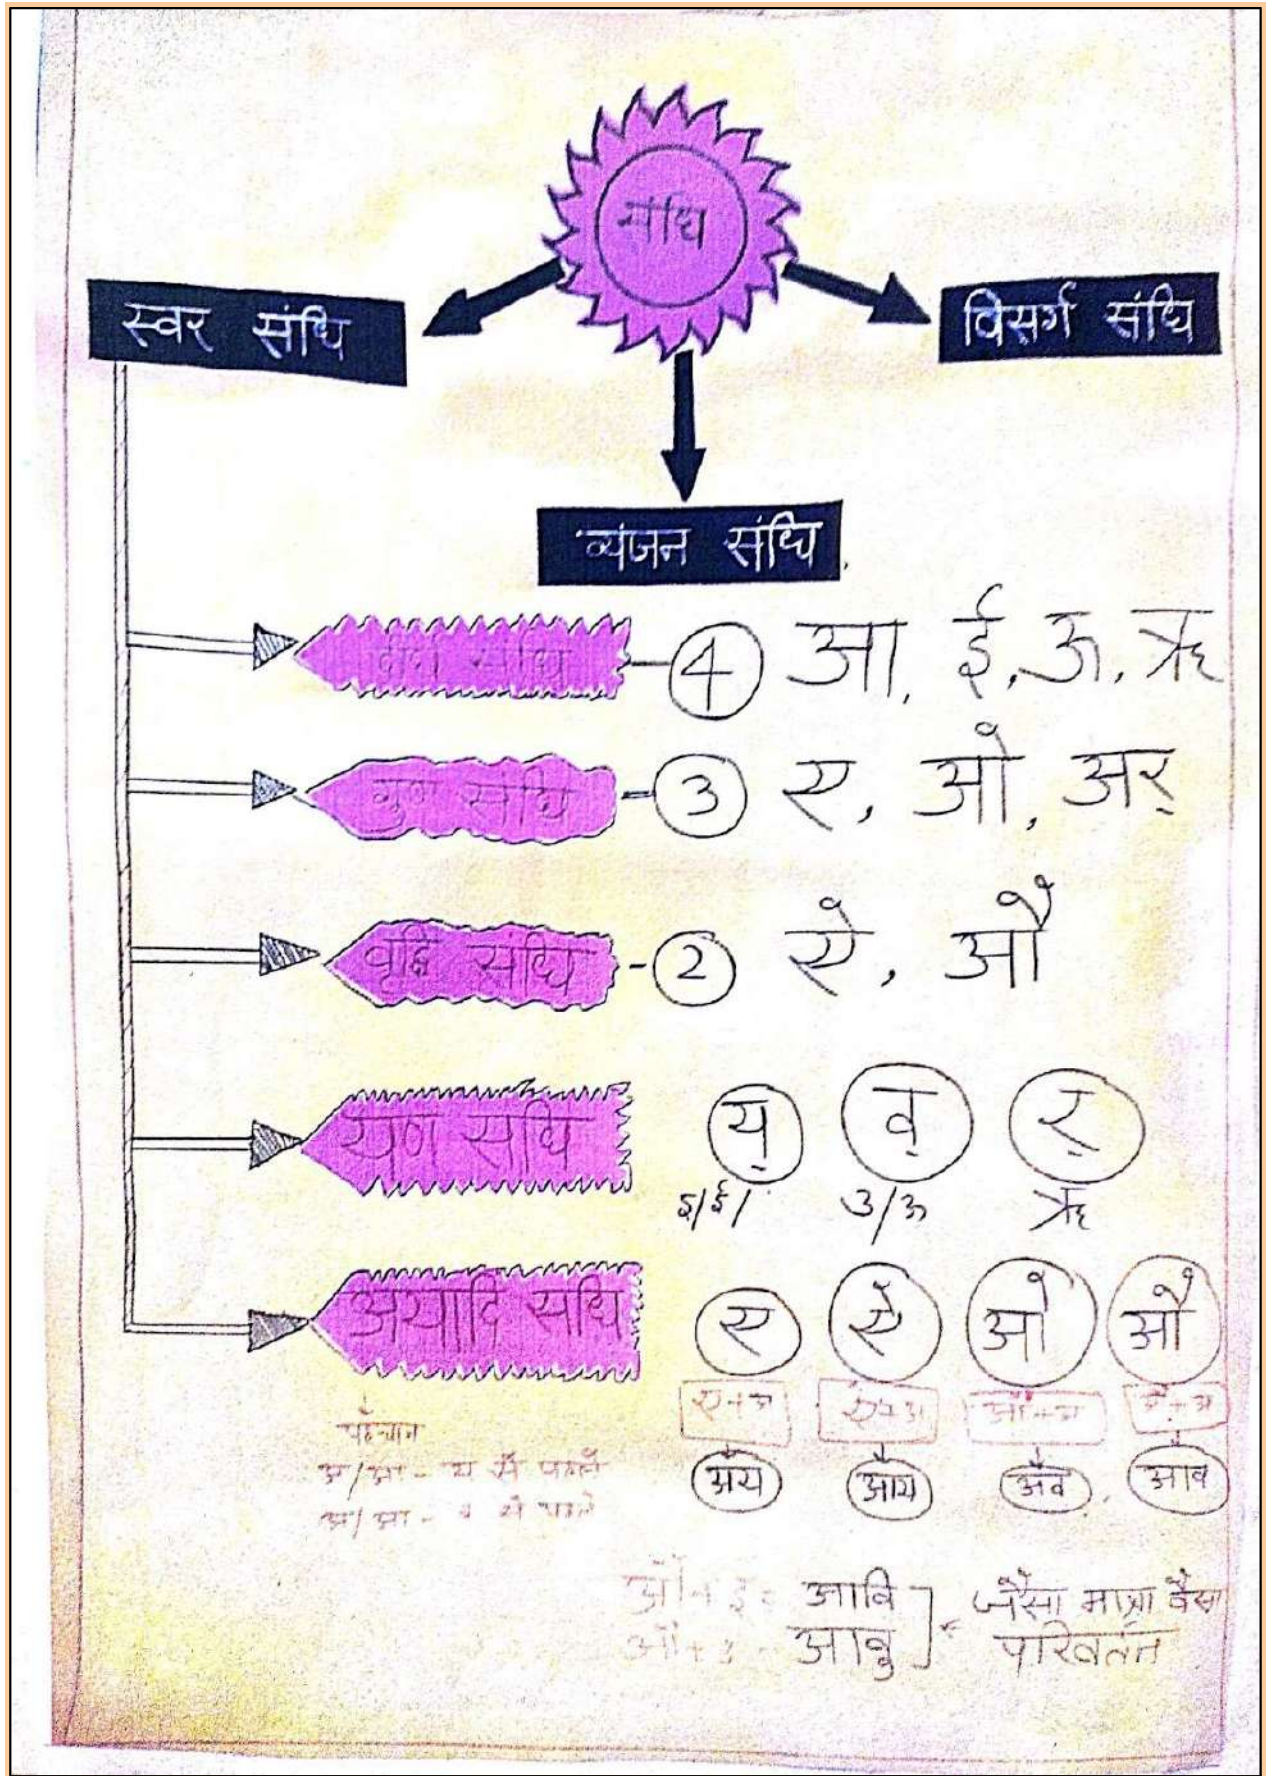 संधि
स्वर संधि
विसर्ग संधि
व्यंजन संधि
दीर्घ संधि - 4 आ, ई, ऊ, ऋ
गुण संधि - 3 ए, ओ, अर्
वृद्धि संधि - 2 ऐ, औ
यण संधि य् व् र्
इ/ई/ उ/ऊ ऋ
अयादि संधि ए ऐ ओ औ
ए+अ ऐ+अ ओ+अ औ+अ
पहचान
अ/आ - य से पहले अय आय अव आव
अ/आ - व से पहले
औ+इ = आवि ] जैसा मात्रा वैसा
औ+उ - आवु परिवर्तन